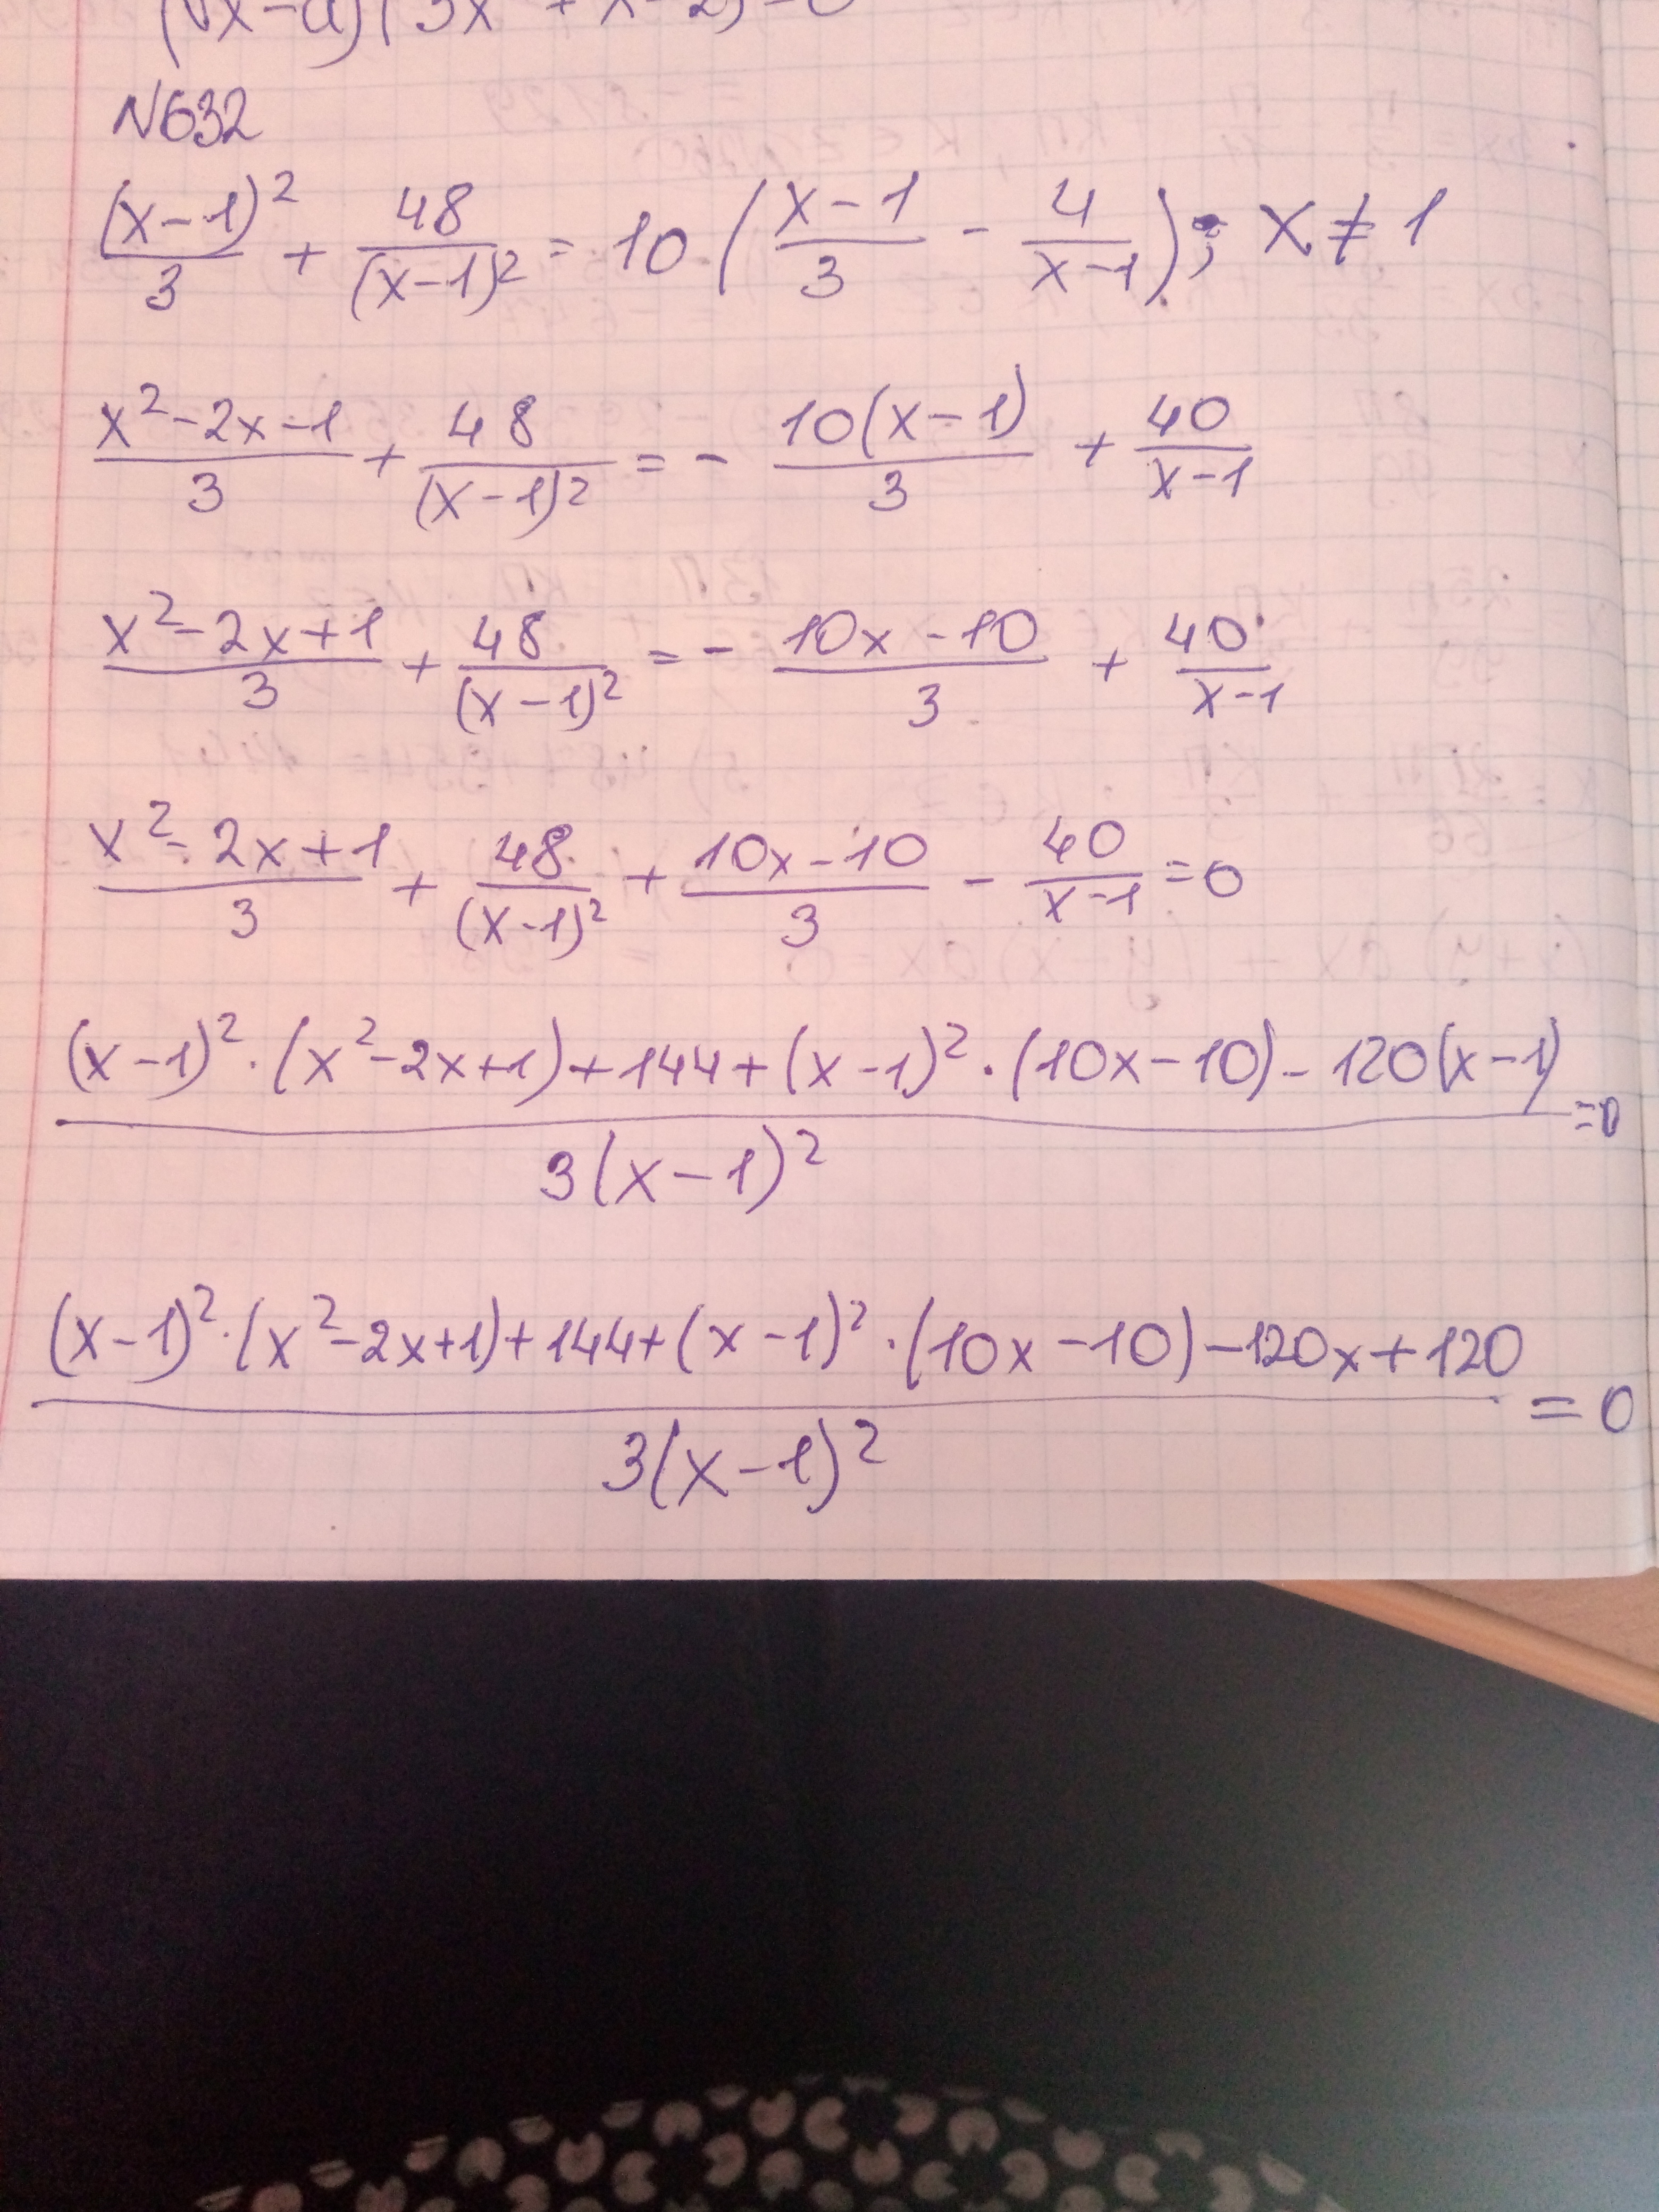 N632
(x-1)²/3 + 48/(x-1)² = 10 (x-1/3 - 4/x-1); x≠1
x²-2x-1/3 + 48/(x-1)² = - 10(x-1)/3 + 40/x-1
x²-2x+1/3 + 48/(x-1)² = - 10x-10/3 + 40/x-1
x²-2x+1/3 + 48/(x-1)² + 10x-10/3 - 40/x-1 = 0
(x-1)²·(x²-2x+1)+144+(x-1)²·(10x-10)-120(x-1)/3(x-1)² = 0
(x-1)²·(x²-2x+1)+144+(x-1)²·(10x-10)-120x+120/3(x-1)² = 0